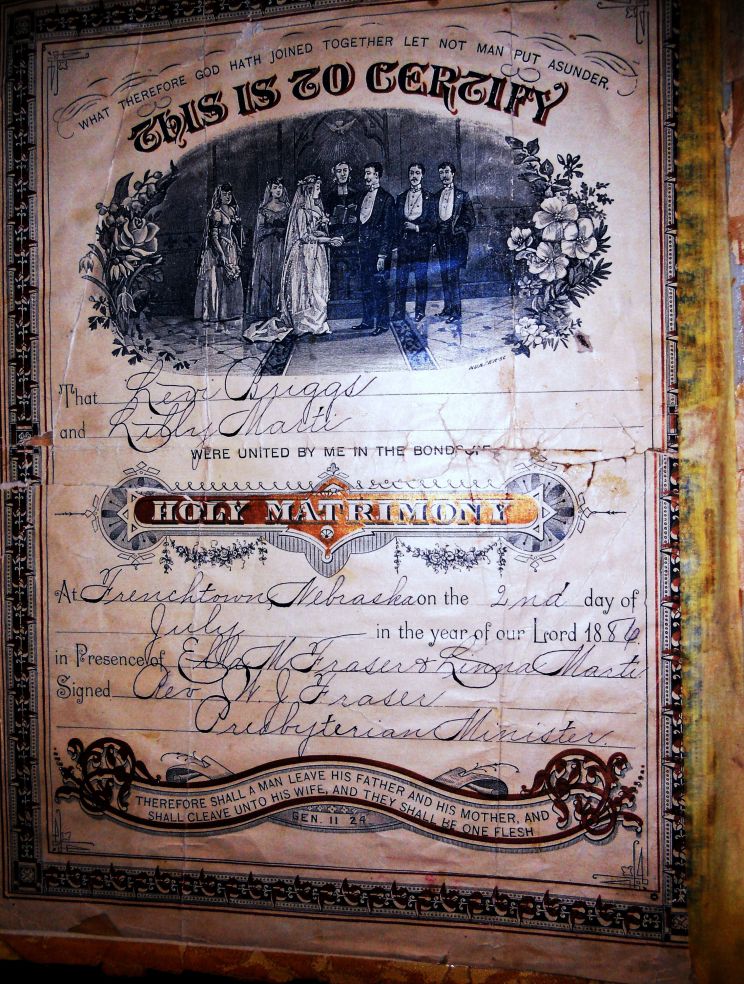 WHAT THEREFORE GOD HATH JOINED TOGETHER LET NOT MAN PUT ASUNDER.
THIS IS TO CERTIFY
That Levi Briggs
and Libby Marti
WERE UNITED BY ME IN THE BONDS OF
HOLY MATRIMONY
At Frenchtown, Nebraska on the 2nd day of
July in the year of our Lord 1886
in Presence of Ella M Fraser & Linna Marti
Signed Rev W. J. Fraser
Presbyterian Minister.
THEREFORE SHALL A MAN LEAVE HIS FATHER AND HIS MOTHER, AND
SHALL CLEAVE UNTO HIS WIFE, AND THEY SHALL BE ONE FLESH
GEN. 11 24